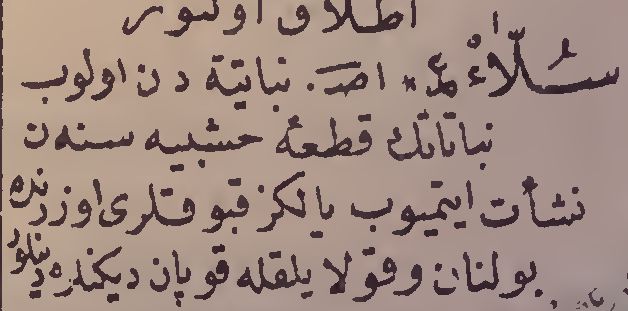 اطلاق اولنور
سُلَّاءْ عم * اصـ. نباتیة دن اولوب
نباتاتك قطعهٔ خشبیه سنه‌دن
نشأت ایتمیوب یالکز قبوقلری اوزرنده
بولنان وقولایلقله قوپان دیکنلره دینلور